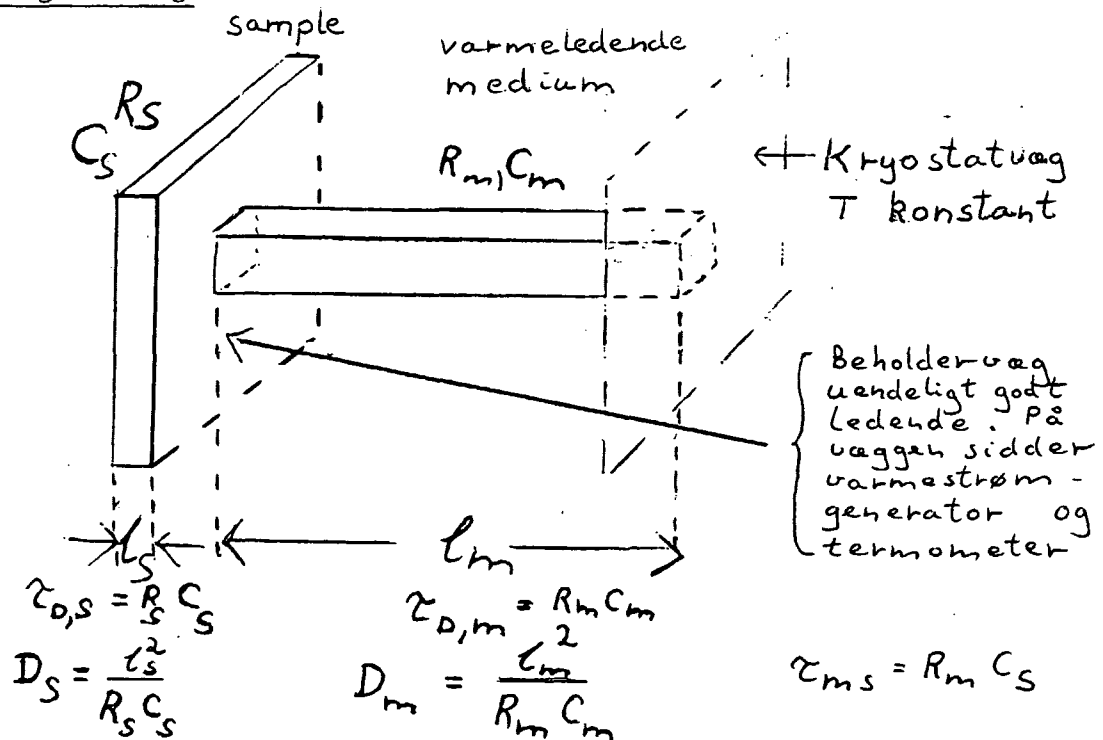 sample
varmeledende
medium
R_S
C_S
R_m, C_m
← Kryostatvæg
T konstant
Beholdervæg
uendeligt godt
ledende. På
væggen sidder
varmestrøm-
generator og
termometer
l_s
l_m
τ_{D,S} = R_S C_S
τ_{D,m} = R_m C_m
D_S = l_s^2 / R_S C_S
D_m = l_m^2 / R_m C_m
τ_{ms} = R_m C_S